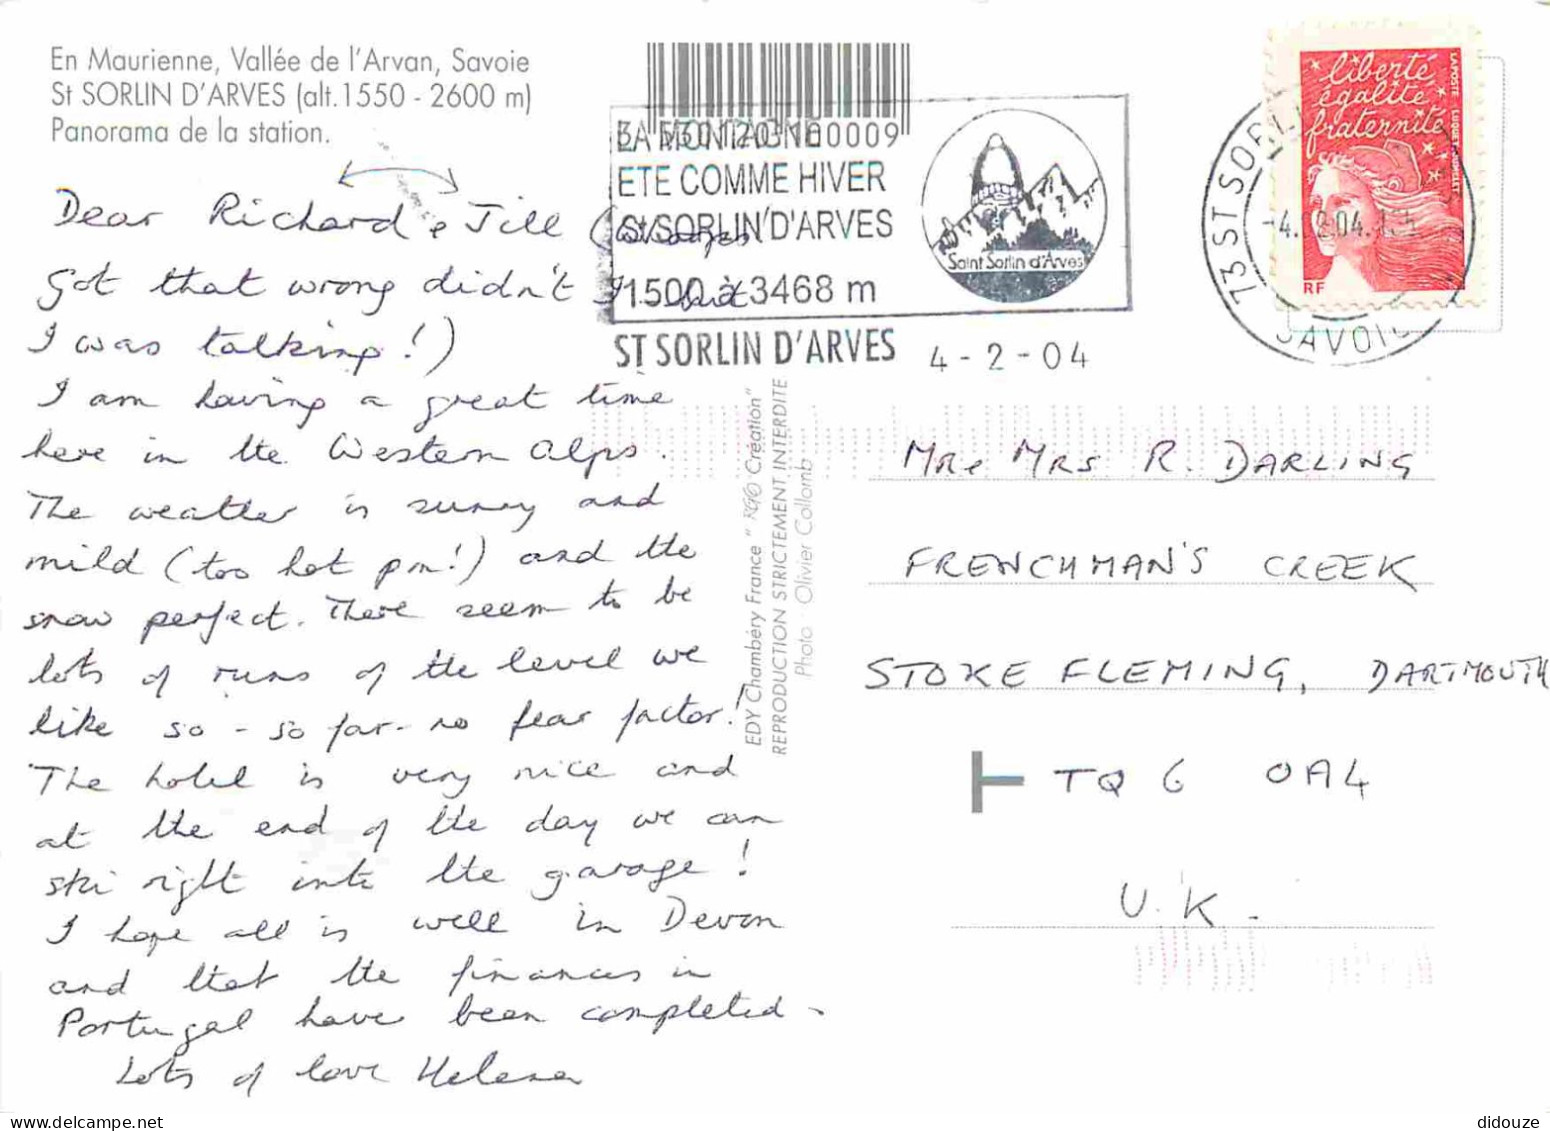 En Maurienne, Vallée de l'Arvan, Savoie
St SORLIN D'ARVES (alt.1550 - 2600 m)
Panorama de la station.
Dear Richard & Jill (whoops
Got that wrong didn't I - but
I was talking!)
I am having a great time
here in the Western Alps.
The weather is sunny and
mild (too hot pm!) and the
snow perfect. There seem to be
lots of runs of the level we
like so - so far - no fear factor!
The hotel is very nice and
at the end of the day we can
ski right into the garage!
I hope all is well in Devon
and that the finances in
Portugal have been completed.
Lots of love Helena
LA MONTAGNE
ETE COMME HIVER
St SORLIN D'ARVES
1500 à 3468 m
ST SORLIN D'ARVES
4-2-04
Saint Sorlin d'Arves
73 ST SORLIN
-4.2.04
SAVOIE
liberté
égalité
fraternité
LA POSTE
RF
EDY Chambéry France " Création"
REPRODUCTION STRICTEMENT INTERDITE
Photo : Olivier Collomb
MR & MRS R. DARLING
FRENCHMAN'S CREEK
STOKE FLEMING, DARTMOUTH
TQ6 0A4
U.K.
didouze